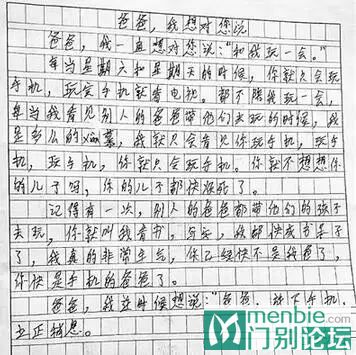 爸爸，我想对您说
爸爸，我一直想对您说："和我玩一会。"
每当星期六和星期天的时候，你就只会玩
手机，玩完手机就看电视。都不陪我玩一会，
每当我看见别人的爸爸带他们去玩的时候，我
是多么的xian慕，我就只会看见你玩手机，玩手
机，玩手机，你就只会玩手机。你就不想想你
的儿子吗，你的儿子都快疯死了。
记得有一次，别人的爸爸都带他们的孩子
去玩，你就叫我看书，写字，我都快成书呆子
了，我真的非常生气，你已经快不是我爸了，
你快是手机的爸爸了。
爸爸，我这时候想说："爸爸，放下手机，
立正稍息。
menbie.com
门别论坛